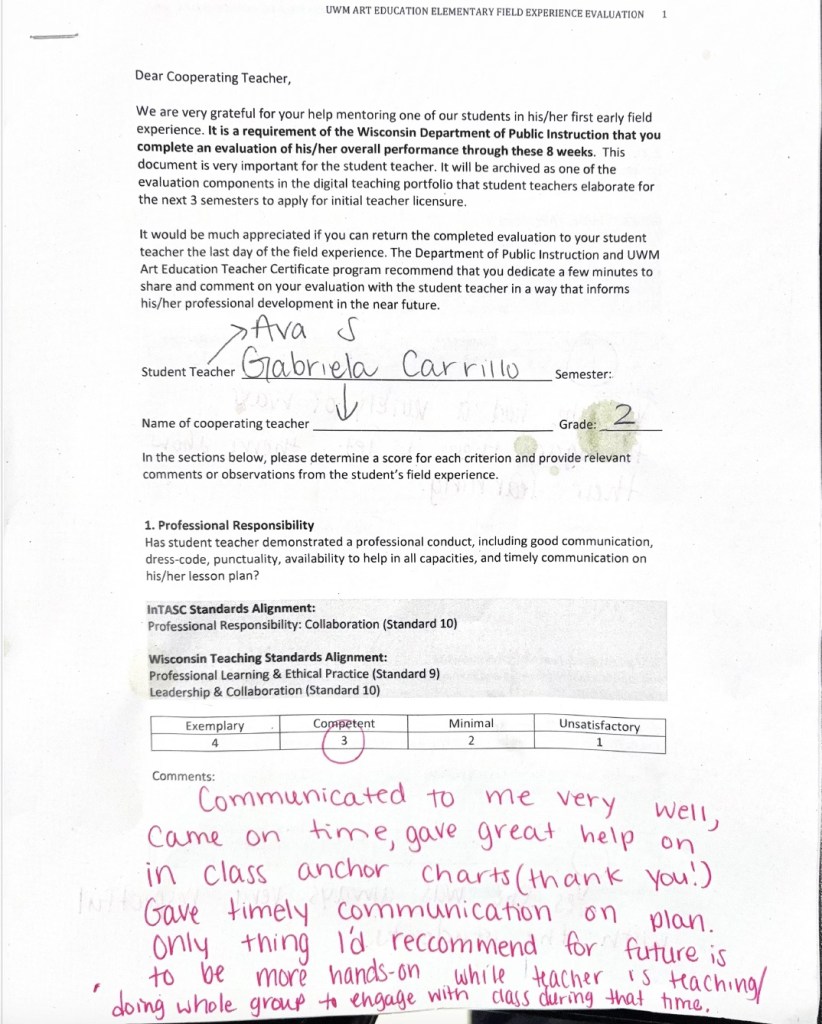 UWM ART EDUCATION ELEMENTARY FIELD EXPERIENCE EVALUATION 1
Dear Cooperating Teacher,
We are very grateful for your help mentoring one of our students in his/her first early field
experience. It is a requirement of the Wisconsin Department of Public Instruction that you
complete an evaluation of his/her overall performance through these 8 weeks. This
document is very important for the student teacher. It will be archived as one of the
evaluation components in the digital teaching portfolio that student teachers elaborate for
the next 3 semesters to apply for initial teacher licensure.
It would be much appreciated if you can return the completed evaluation to your student
teacher the last day of the field experience. The Department of Public Instruction and UWM
Art Education Teacher Certificate program recommend that you dedicate a few minutes to
share and comment on your evaluation with the student teacher in a way that informs
his/her professional development in the near future.
Ava S
Student Teacher Gabriela Carrillo Semester:
Name of cooperating teacher Grade: 2
In the sections below, please determine a score for each criterion and provide relevant
comments or observations from the student's field experience.
1. Professional Responsibility
Has student teacher demonstrated a professional conduct, including good communication,
dress-code, punctuality, availability to help in all capacities, and timely communication on
his/her lesson plan?
InTASC Standards Alignment:
Professional Responsibility: Collaboration (Standard 10)
Wisconsin Teaching Standards Alignment:
Professional Learning & Ethical Practice (Standard 9)
Leadership & Collaboration (Standard 10)
Exemplary Competent Minimal Unsatisfactory
4 3 2 1
Comments:
Communicated to me very well,
Came on time, gave great help on
in class anchor charts (thank you!)
Gave timely communication on plan.
Only thing I'd reccommend for future is
to be more hands-on while teacher is teaching/
doing whole group to engage with class during that time.